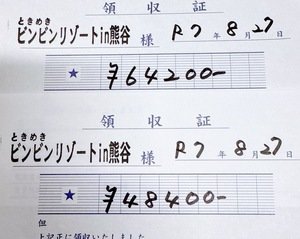 領収証
ときめき
ピンピンリゾートin熊谷 様 R7年8月27日
★ ¥64200-
領収証
ときめき
ピンピンリゾートin熊谷 様 R7年8月27日
★ ¥48400-
但
上記正に領収いたしました